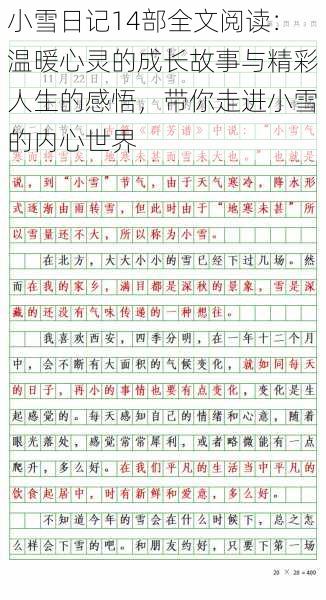 小雪日记14部全文阅读：
温暖心灵的成长故事与精彩
11月22日，节气小雪。
人生的感悟，带你走进小雪
《群芳谱》中说：“小雪气
的内心世界
寒而将雪矣，地寒未甚而雪未大也。”也就是
说，到“小雪”节气，由于天气寒冷，降水形
式逐渐由雨转雪，但此时由于“地寒未甚”所
以雪量还不大，所以称为小雪。
在北方，大大小小的雪已经下过几场。然
而在我的家乡，满目都是深秋的景象，雪是深
藏的还没有气味传递的一种想往。
我喜欢西安，四季分明，在一年十二个月
中，会不断有大面积的气候变化，就如同每天
的日子，再小的事情也要有点变化，变化是生
起感觉的。每天感知自己的情绪和心意，随着
眼光落处，感觉常常犀利，或者略微能有一点
爬升，多么好。在我们平凡的生活当中平凡的
饮食起居中，时有新鲜和爱意，多么好。
不知道今年的雪会在什么时候下，总之怎
么样会下雪的吧。和朋友约好，只要下第一场
20 × 20 = 400